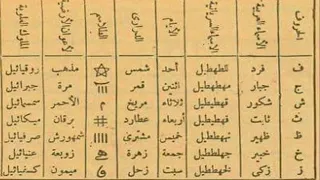 الحروف الأسماء العربية الأسماء السريانية الأيام الدرارى الطلاسم الأعوان الأرضية الملوك العلوية
ف فرد للطهطيل أحد شمس مذهب روقيائيل
ج جبار مهطهطيل اثنين قمر مرة جبرائيل
ش شكور قهطيطيل ثلاثاء مريخ الأحمر سمسمائيل
ث ثابت فهطبطيل أربعاء عطارد برقان ميكائيل
ظ ظهير نهههططيل خميس مشترى شمهورش صرفيائيل
خ خبير جهلططيل جمعة زهرة زوبعة عنيائيل
ز زكى لخهططيل سبت زحل ميمون كسفيائيل